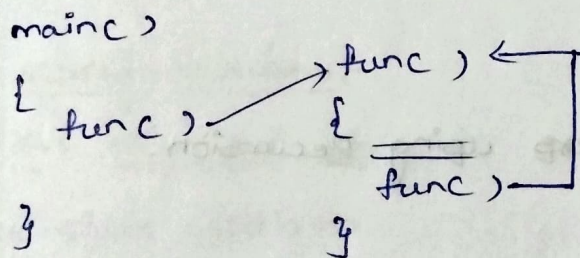 main()
{
func()
}
func()
{
func()
}